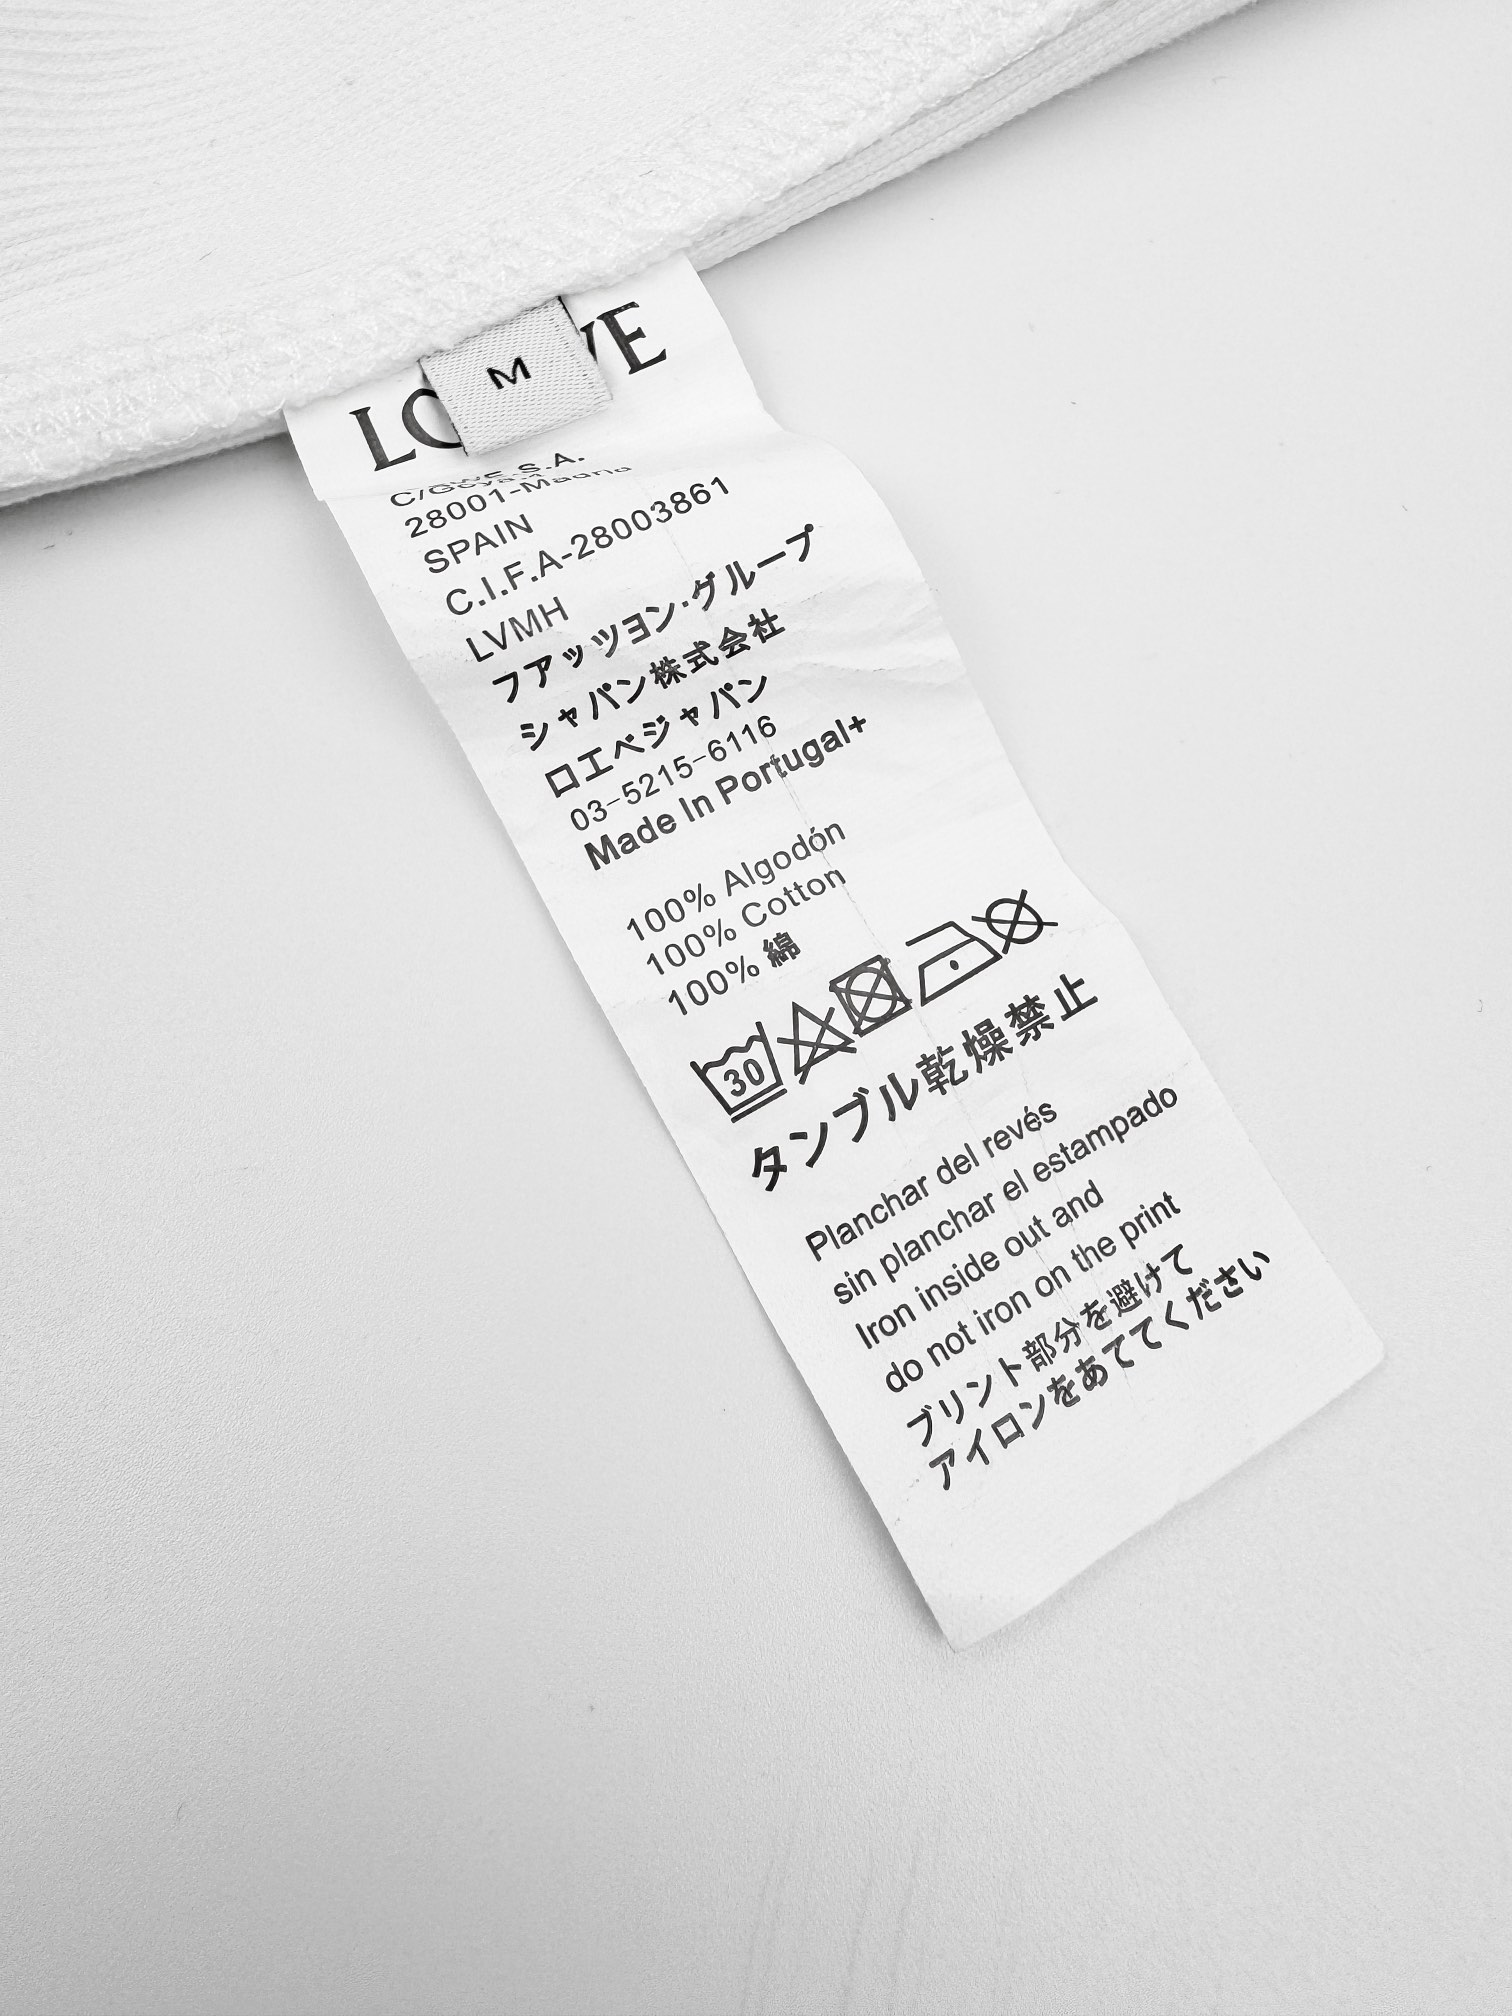 M
28001-Madrid
SPAIN
C.I.F.A-28003861
LVMH
フアッツヨン·グループ
シャパン株式会社
ロエベジャパン
03-5215-6116
Made In Portugal+
100% Algodón
100% Cotton
100% 綿
30
タンブル乾燥禁止
Planchar del revés
sin planchar el estampado
Iron inside out and
do not iron on the print
プリント部分を避けて
アイロンをあててください